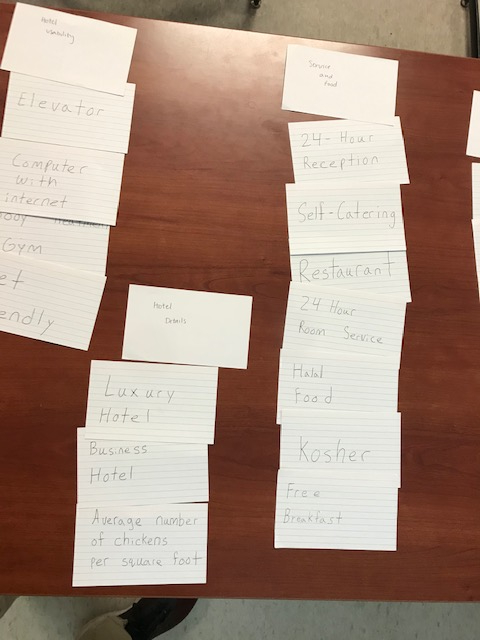 Hotel
usability
Elevator
Computer
with
internet
Gym
Hotel
Details
Luxury
Hotel
Business
Hotel
Average number
of chickens
per square foot
Service
and
Food
24-Hour
Reception
Self-Catering
Restaurant
24 Hour
Room Service
Halal
Food
Kosher
Free
Breakfast